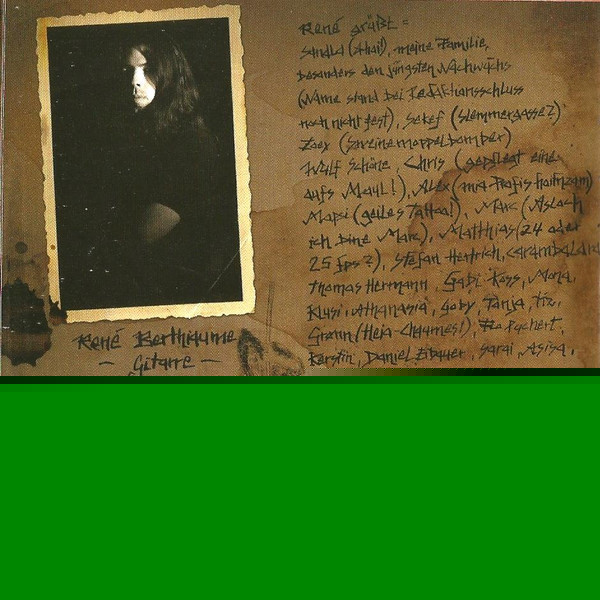 René Berthiaume
- Gitarre -
René grüßt =
Sandla (shai), meine Familie,
besonders den jüngsten Nachwuchs
(Name stand bei Redaktionsschluss
noch nicht fest), Sekef (Slemmergasse?)
Zoex (Schweinemoppelbomber)
Wolf Schöne, Chris (gepflegt eine
aufs Maul!), Alex (mia Profis
Mapsi (geiles Tattoo!), Marc (Aslach
ich bine Marc), Matthias (24 oder
25 fps?), Stefan Hertrich,
Thomas Herrmann, Gabi Koss, Mona,
Klusi, Athanasia, Goby, Tanja, Tiz,
Grønn (Heia-Chaumes!), Puchert,
Kerstin, Daniel Eibauer, Sarai, Asisa,